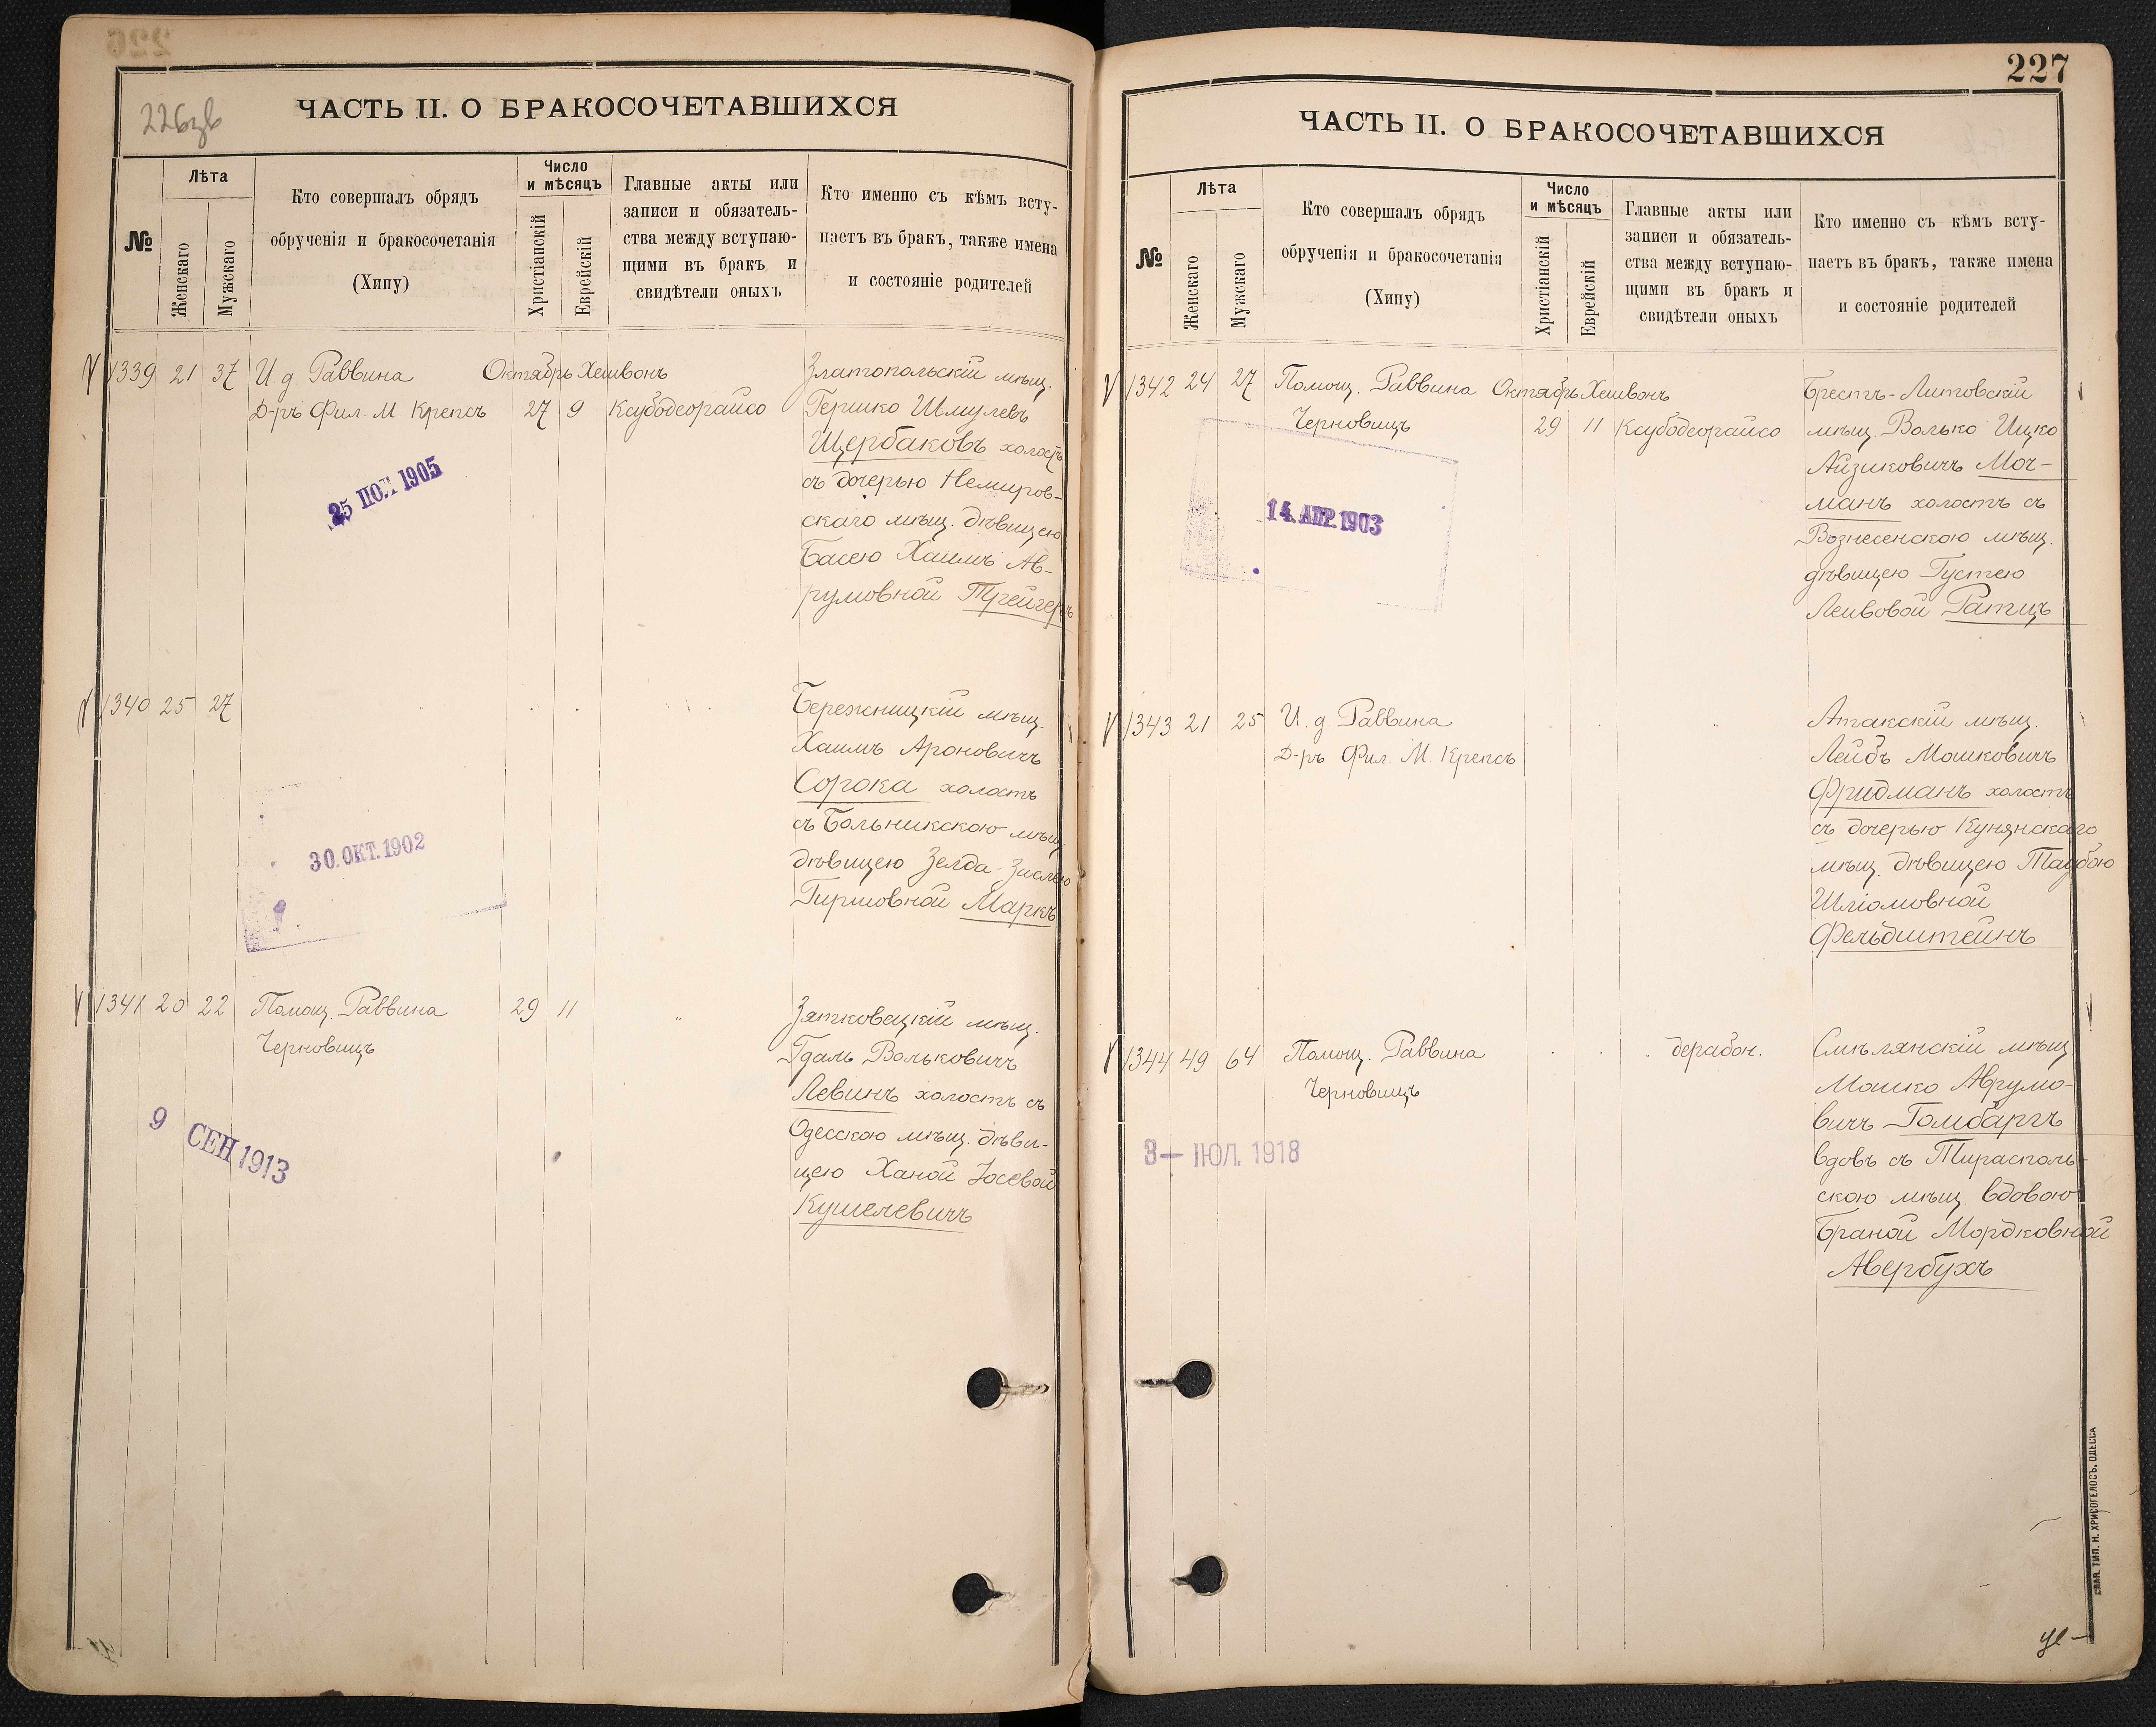 226зв
ЧАСТЬ II. О БРАКОСОЧЕТАВШИХСЯ
№
Лѣта
Женскаго
Мужскаго
Кто совершалъ обрядъ
обрученія и бракосочетанія
(Хипу)
Число
и мѣсяцъ
Христіанскій
Еврейскій
Главные акты или
записи и обязатель-
ства между вступаю-
щими въ бракъ и
свидѣтели оныхъ
Кто именно съ кѣмъ всту-
паетъ въ бракъ, также имена
и состояніе родителей
1339 21 37 И. д. Раввина Октябрь Хешвонъ
Д-ръ Фил. М. Крепсъ 27 9 Ксубодеорайсо
Златопольскій мѣщ.
Гершко Шмулевъ
Щербаковъ холостъ
съ дочерью Немиров-
скаго мѣщ. дѣвицею
Басею Хаимъ Ав-
румовной Трейгеръ
25 ІЮЛ 1905
1340 25 27
Бережницкій мѣщ.
Хаимъ Ароновичъ
Сорока холостъ
съ Больникскою мѣщ.
дѣвицею Зелда-Зислею
Гиршовной Маркъ
30. ОКТ. 1902
1341 20 22 Помощ. Раввина 29 11 "
Черновицъ
Зятковецкій мѣщ.
Гдаль Вольковичъ
Левинъ холостъ съ
Одесскою мѣщ. дѣви-
цею Ханой Іосевой
Кушелевичъ
9 СЕН 1913
227
ЧАСТЬ II. О БРАКОСОЧЕТАВШИХСЯ
№
Лѣта
Женскаго
Мужскаго
Кто совершалъ обрядъ
обрученія и бракосочетанія
(Хипу)
Число
и мѣсяцъ
Христіанскій
Еврейскій
Главные акты или
записи и обязатель-
ства между вступаю-
щими въ бракъ и
свидѣтели оныхъ
Кто именно съ кѣмъ всту-
паетъ въ бракъ, также имена
и состояніе родителей
1342 24 27 Помощ. Раввина Октябрь Хешвонъ
Черновицъ 29 11 Ксубодеорайсо
Брестъ-Литовскій
мѣщ. Волько Ицко
Айзиковичъ Моч-
манъ холостъ съ
Вознесенскою мѣщ.
дѣвицею Густею
Лейвовой Ратцъ
14. АПР. 1903
1343 21 25 И. д. Раввина "
Д-ръ Фил. М. Крепсъ
Атакскій мѣщ.
Лейбъ Мошковичъ
Фридманъ холостъ
съ дочерью Кунянскаго
мѣщ. дѣвицею Таубою
Шліомовной
Фельдштейнъ
1344 49 64 Помощ. Раввина дерабон.
Черновицъ
Смѣлянскій мѣщ.
Мошко Аврумо-
вичъ Гомбаргъ
вдовъ съ Тирасполь-
скою мѣщ. вдовою
Браной Мордковной
Авербухъ
3 — ІЮЛ. 1918
СЛАВ. ТИП. Н. ХРИСОГЕЛОСЪ, ОДЕССА